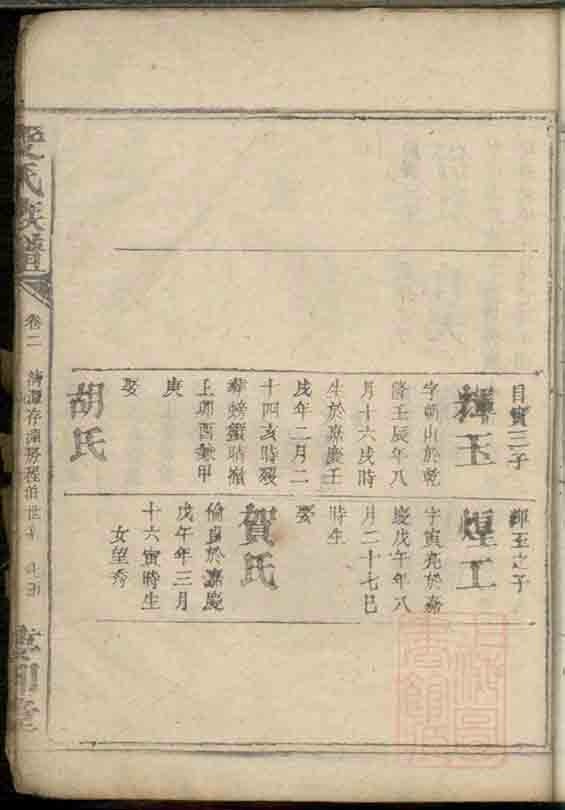 目寶三子
輝玉
字朝山於乾
隆壬辰年八
月十六戌時
生於嘉慶壬
戌年二月二
十四亥時歿
葬螃蟹晴嶺
上卯酉兼甲
庚
娶
胡氏
輝玉之子
煌工
字寅亮於嘉
慶戊午年八
月二十七巳
時生
娶
賀氏
倫貞於嘉慶
戊午年三月
十六寅時生
女望秀
氏族譜
卷二